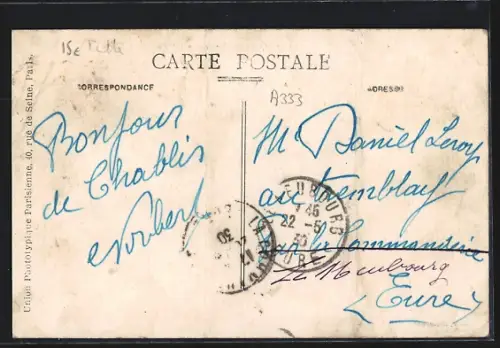 15€
CARTE POSTALE
CORRESPONDANCE
ADRESSE
A333
Bonjour
de Chablis
Norbert
M. Daniel Leroy
au Tremblay
par la Commanderie
Le Neubourg
(Eure)
NEUBOURG
22 -5
30
EURE
Union Phototypique Parisienne, 40, rue de Seine, Paris.